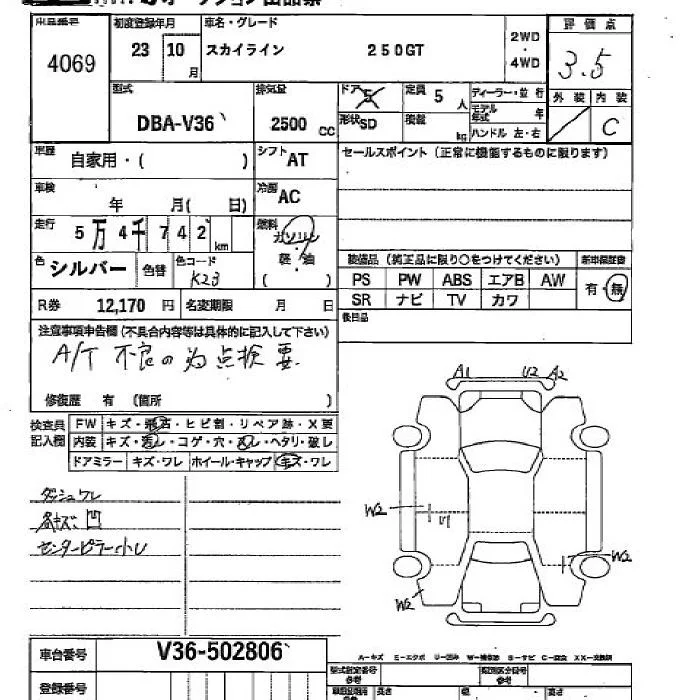 オークション出品票
出品番号
4069
初度登録年月
23 10月
車名・グレード
スカイライン 250GT
2WD・4WD
評価点
3.5
外装 内装
C
型式
DBA-V36
排気量
2500 CC
ドア 5
形状 SD
定員 5 人
積載 kg
ディーラー・並行
モデル年式 年
ハンドル 左・右
車歴
自家用・( )
シフト AT
セールスポイント(正常に機能するものに限ります)
車検
年 月( 日)
冷房
AC
走行
5万4千742km
燃料
ガソリン・軽・油
( )
色 シルバー 色替
色コード
K23
装備品(純正品に限り○をつけてください)
新車保証書
PS PW ABS エアB AW
有・無
SR ナビ TV カワ
R券 12,170 円 名変期限 月 日
後日品
注意事項申告欄(不具合内容等は具体的に記入して下さい)
A/T 不良の為点検要
修復歴 有 (箇所 )
検査員記入欄
FW キズ・飛石・ヒビ割・リペア跡・X要
内装 キズ・汚レ・コゲ・穴・スレ・ヘタリ・破レ
ドアミラー キズ・ワレ ホイール・キャップ キズ・ワレ
ダッシュワレ
各キズ、凹
センターピラー小U
A1 U2 A2
W2
U1
W2
W2
A-キズ E-エクボ U-凹み W-補修跡 S-サビ C-腐食 XX-交換済
車台番号 V36-502806
登録番号
型式指定番号
類別区分番号
長さ 幅 高さ